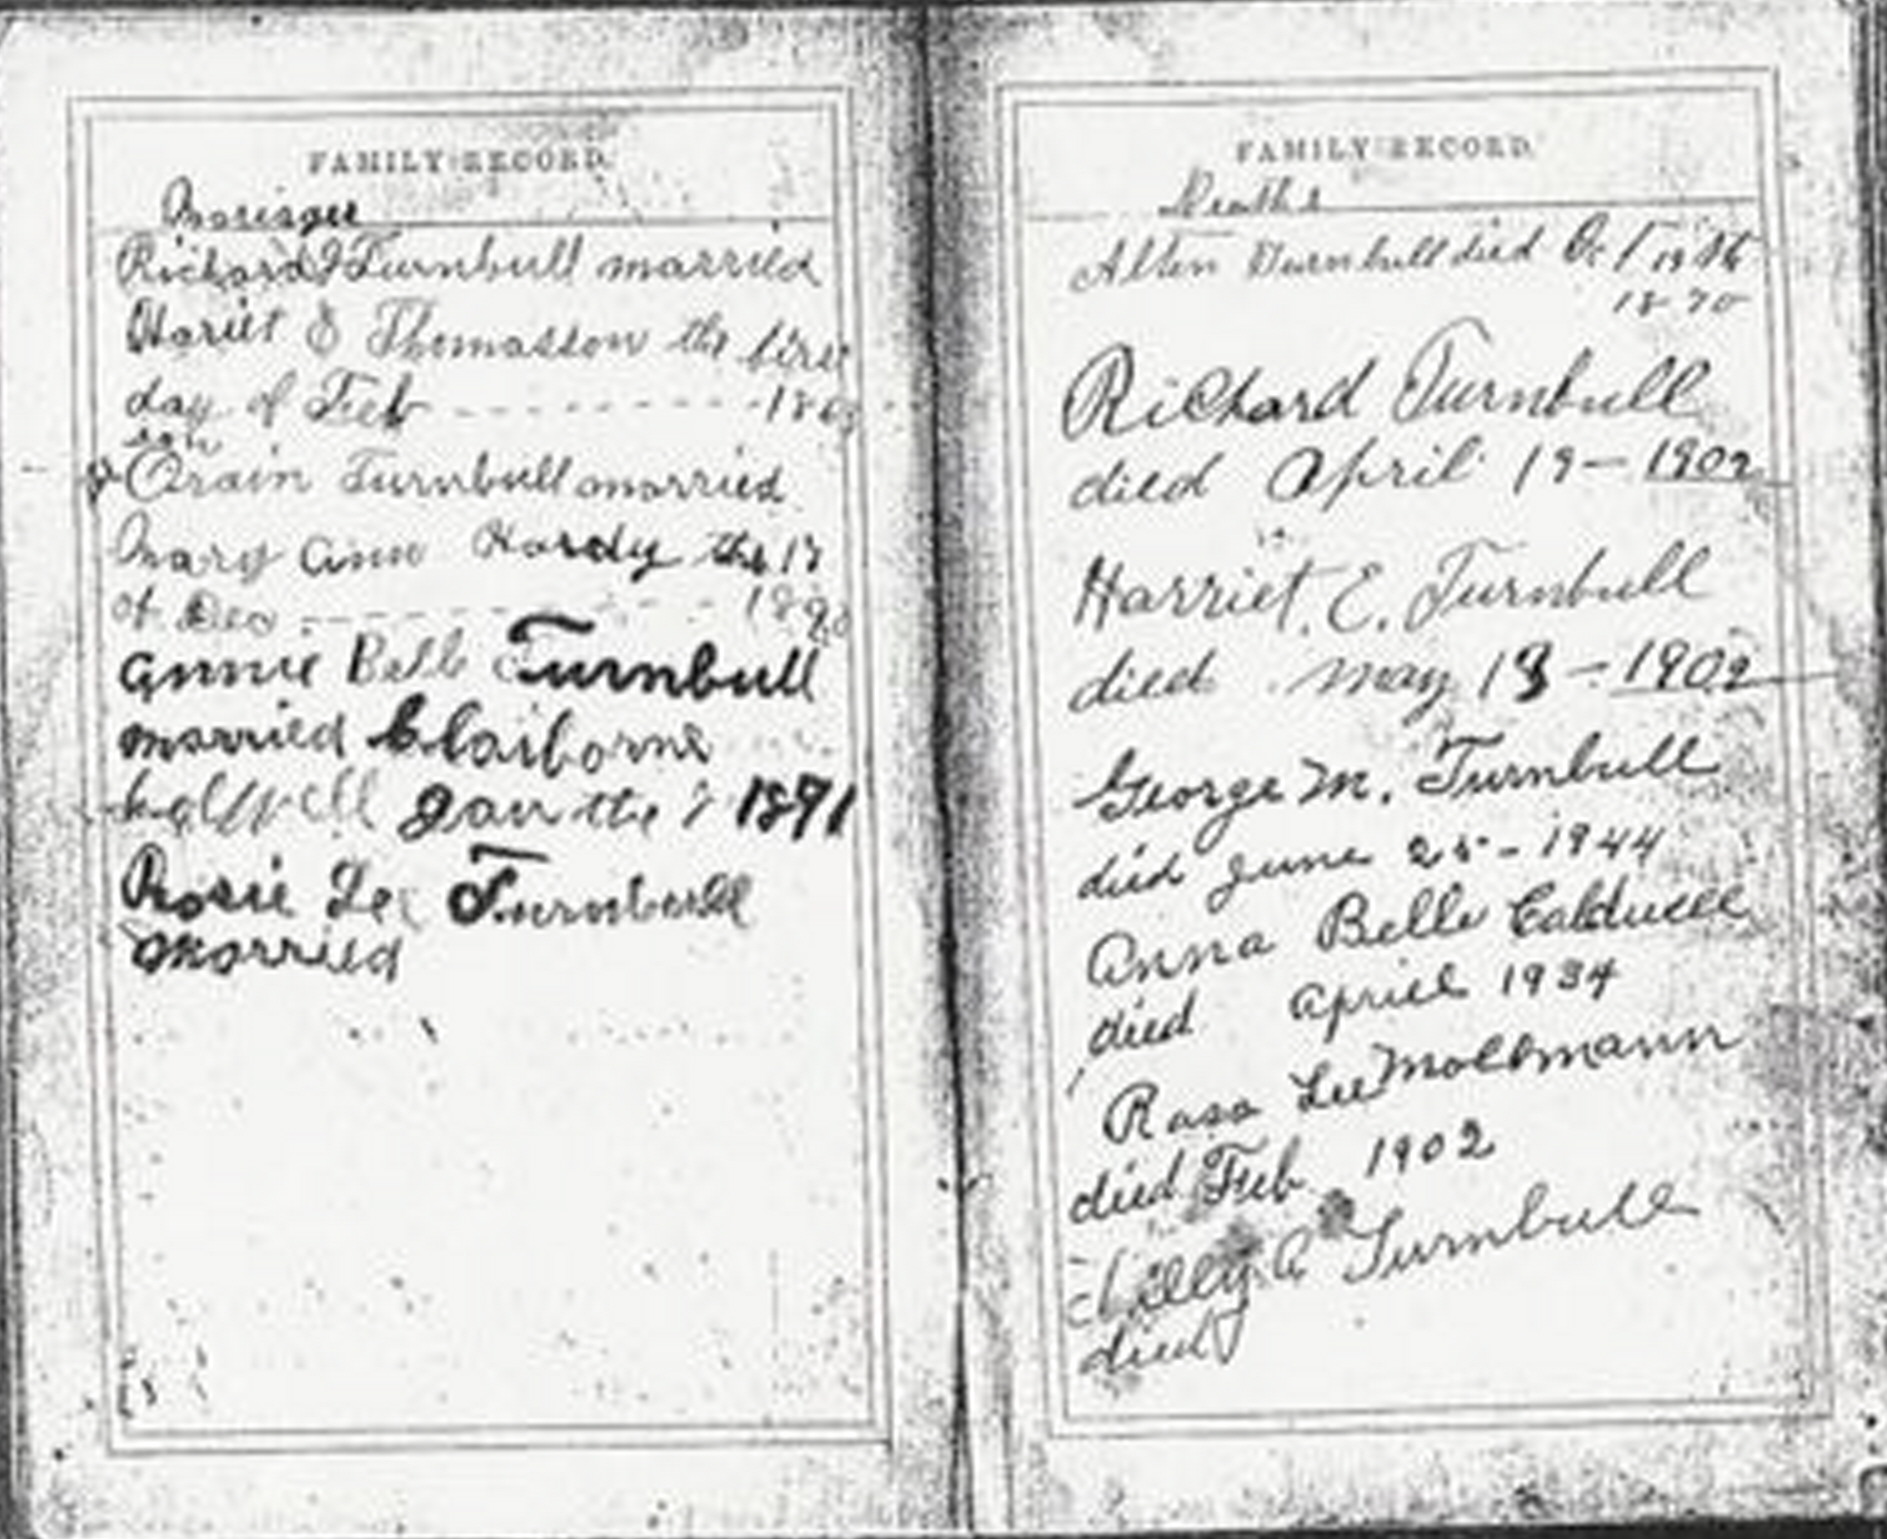 FAMILY RECORD.
Mariages
Richard J Turnbull married
Hariet E Thomasson the first
day of Feb - - - - - - - - - - 186
son
Orain Turnbull married
Mary Ann Hardy the 18
of Dec - - - - - - - - - 1890
Annie Bell Turnbull
married Claiborne
Jan the 1891
Rosie Lee Turnbull
Married
FAMILY RECORD.
Deaths
Turnbull died Oct 19th
1870
Richard Turnbull
died April 19 - 1902
Harriet. E. Turnbull
died May 18 - 1902
George M. Turnbull
died June 25 - 1944
Anna Belle Caldwell
died Aprill 1934
Rosa Lee Mollmann
died Feb 1902
Turnbull
died